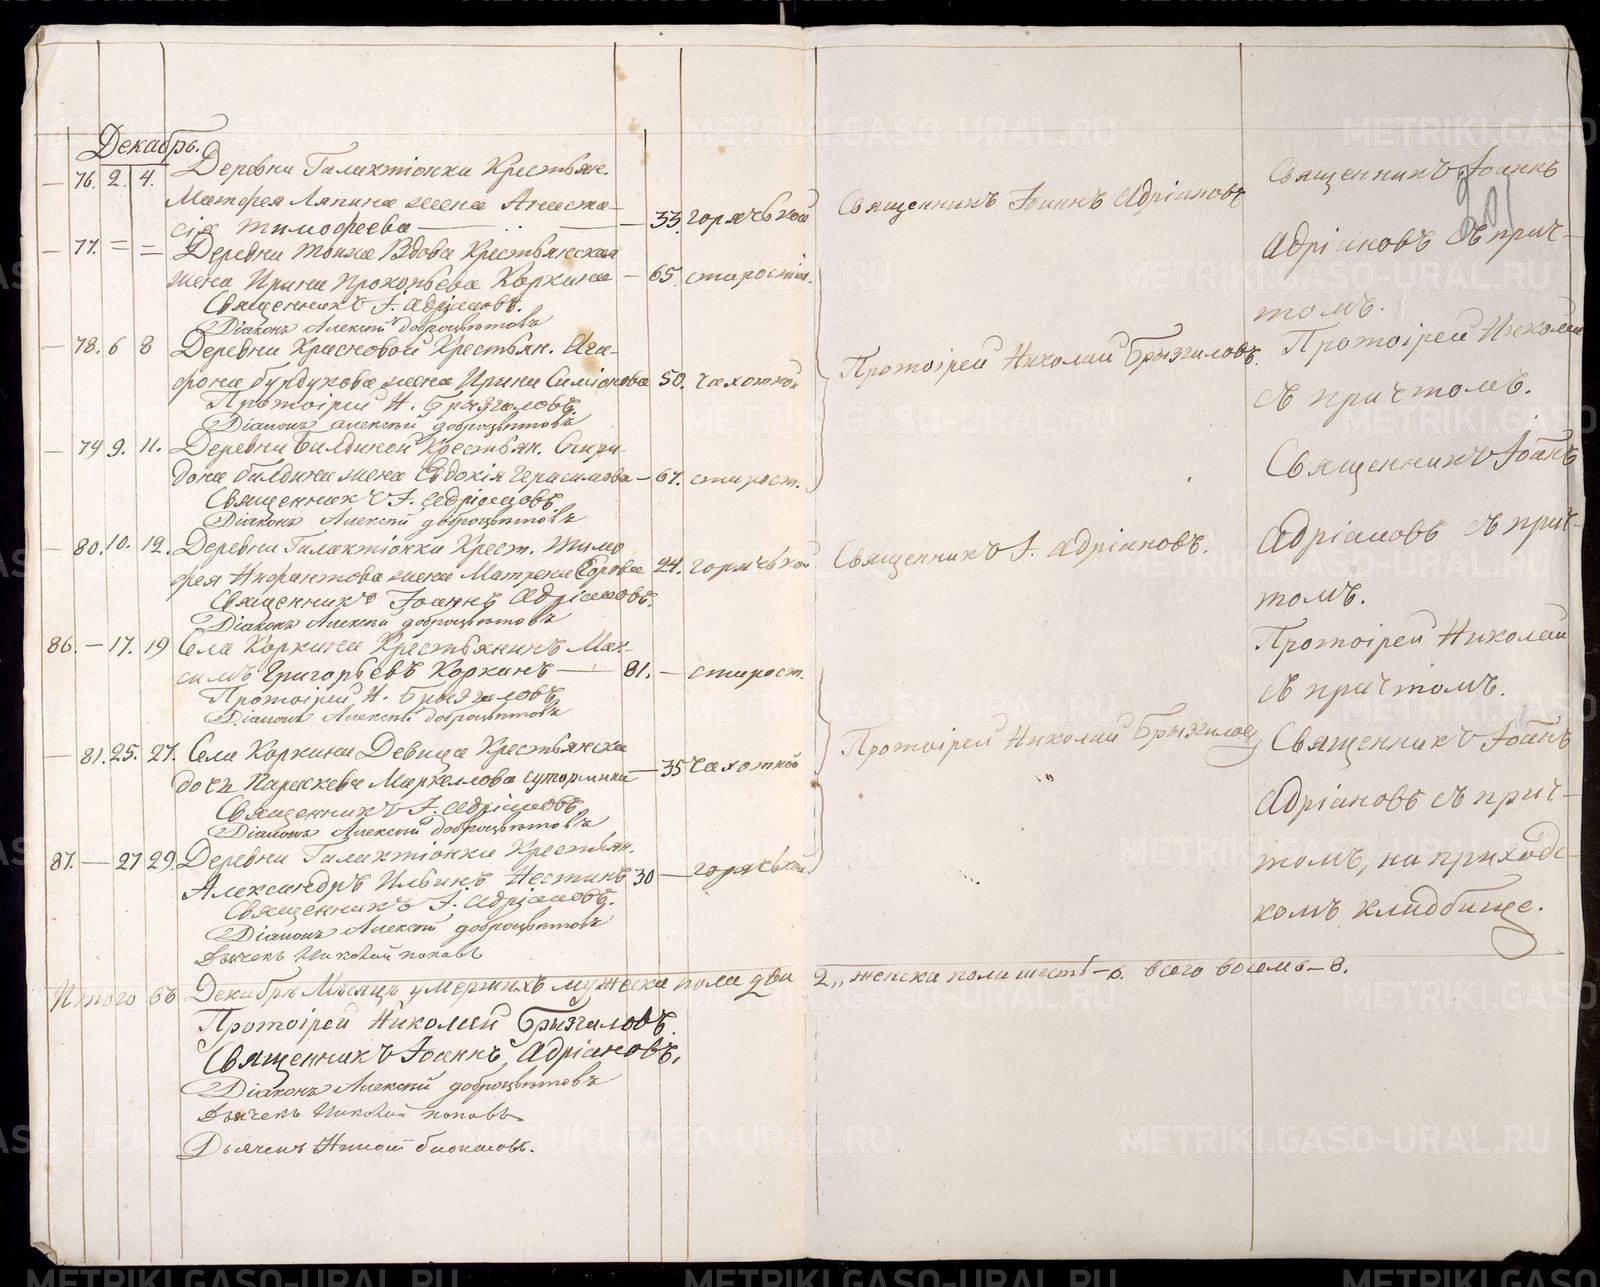 Декабрь.
76. 2. 4. Деревни Галактіонки Крестьян.
Матфея Ляпина жена Анаста-
сія Тимофеева — 33. горячькой
77. = = Деревни тоижа Вдова Крестьянская
жена Ирина Прокопьева Коркина — 65. старостію.
Священникъ І. Адріановъ.
Діаконъ Алексій Доброцвѣтовъ
78. 6 8 Деревни Красновой Крестьян. Ага-
фона Бурдукова жена Ирина Симіонова 50. чахоткой
Протоіерей Н. Брызгаловъ.
Діаконъ Алексій Доброцвѣтовъ
79 9. 11. Деревни Билдиной Крестьян. Спири-
дона Билдина жена Евдокія Герасимова — 67. старост.
Священникъ І. Адріановъ.
Діаконъ Алексій Доброцвѣтовъ
80. 10. 12. Деревни Галактіонки Крест. Тимо
фея Нифантова жена Матрена Егорова 24. горячькой
Священникъ Іоаннъ Адріановъ.
Діаконъ Алексій Доброцвѣтовъ
86. — 17. 19 Села Коркина Крестьянинъ Мак-
симъ Григорьевъ Коркинъ — 81. — старост.
Протоіерей Н. Брызгаловъ
Діаконъ Алексій Доброцвѣтовъ
— 81. 25. 27. Села Коркина Девица Крестьянска
дочь Параскева Маркеллова Сутормина — 35 чахоткой
Священникъ І. Адріановъ
Діаконъ Алексій Доброцвѣтовъ
87. — 27 29. Деревни Галактіонки Крестьян.
Александръ Ильинъ Нестинъ 30 — горячькой
Священникъ І. Адріановъ.
Діаконъ Алексій Доброцвѣтовъ
Дьячекъ Николай Поповъ
Итого въ Декабрѣ Мѣсяцѣ умершихъ мужеска пола два 2,, женска пола шесть — 6. всего восемь — 8.
Протоіерей Николай Брызгаловъ.
Священникъ Іоаннъ Адріановъ.
Діаконъ Алексій Доброцвѣтовъ
Дьячекъ Николай Поповъ
Дьячекъ
Священникъ Іоаннъ Адріановъ
Протоіерей Николай Брызгаловъ.
Священникъ І. Адріановъ.
Протоіерей Николай Брызгаловъ
Священникъ Іоаннъ
Адріановъ съ прич-
томъ.
Протоіерей Николай
съ причтомъ.
Священникъ Іоанъ
Адріановъ съ прич-
томъ.
Протоіерей Николай
съ причтомъ.
Священникъ Іоанъ
Адріановъ съ прич-
томъ, на приходс-
комъ кладбище.
METRIKI.GASO-URAL.RU